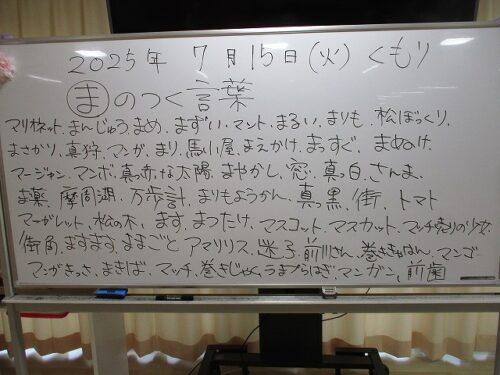 2025年 7月15日(火) くもり
まのつく言葉
マリオネット、まんじゅう、まめ、まずい、マント、まるい、まりも、松ぼっくり、
まさかり、真狩、マンガ、まり、馬小屋、まえかけ、まっすぐ、まぬけ、
マージャン、マンボ、真っ赤な太陽、まやかし、窓、真っ白、さんま、
麻薬、摩周湖、万歩計、まりもようかん、真っ黒、街、トマト
マーガレット、松の木、ます、まつたけ、マスコット、マスカット、マッチ売りの少女
街角、ますます、ままごと、アマリリス、迷子、前川さん、巻ききゃはん、マンゴー
マンガきっさ、まきば、マッチ、巻きじゃく、うまづらはぎ、マンガン、前歯